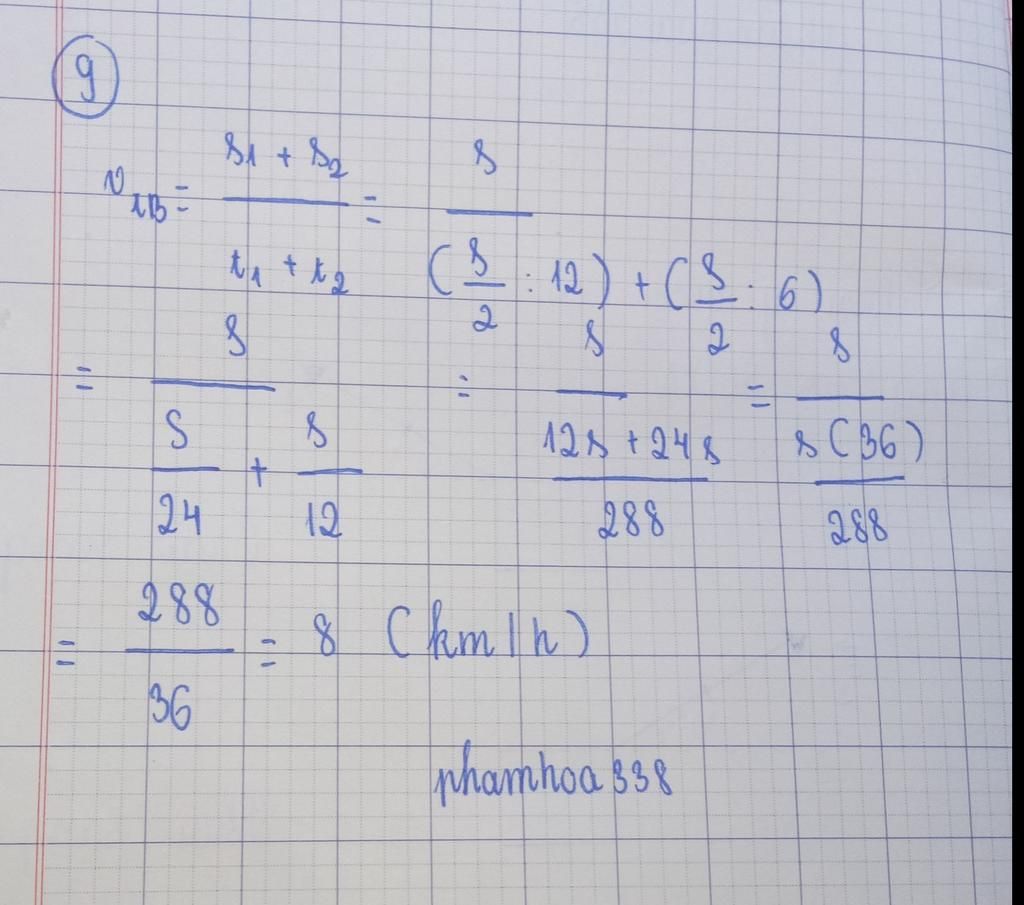 9
v_tB = (s1 + s2)/(t1 + t2) = s/((s/2 : 12) + (s/2 : 6))
= s/(s/24 + s/12) = s/((12s + 24s)/288) = s/(s(36)/288)
= 288/36 = 8 (km/h)
phamhoa338